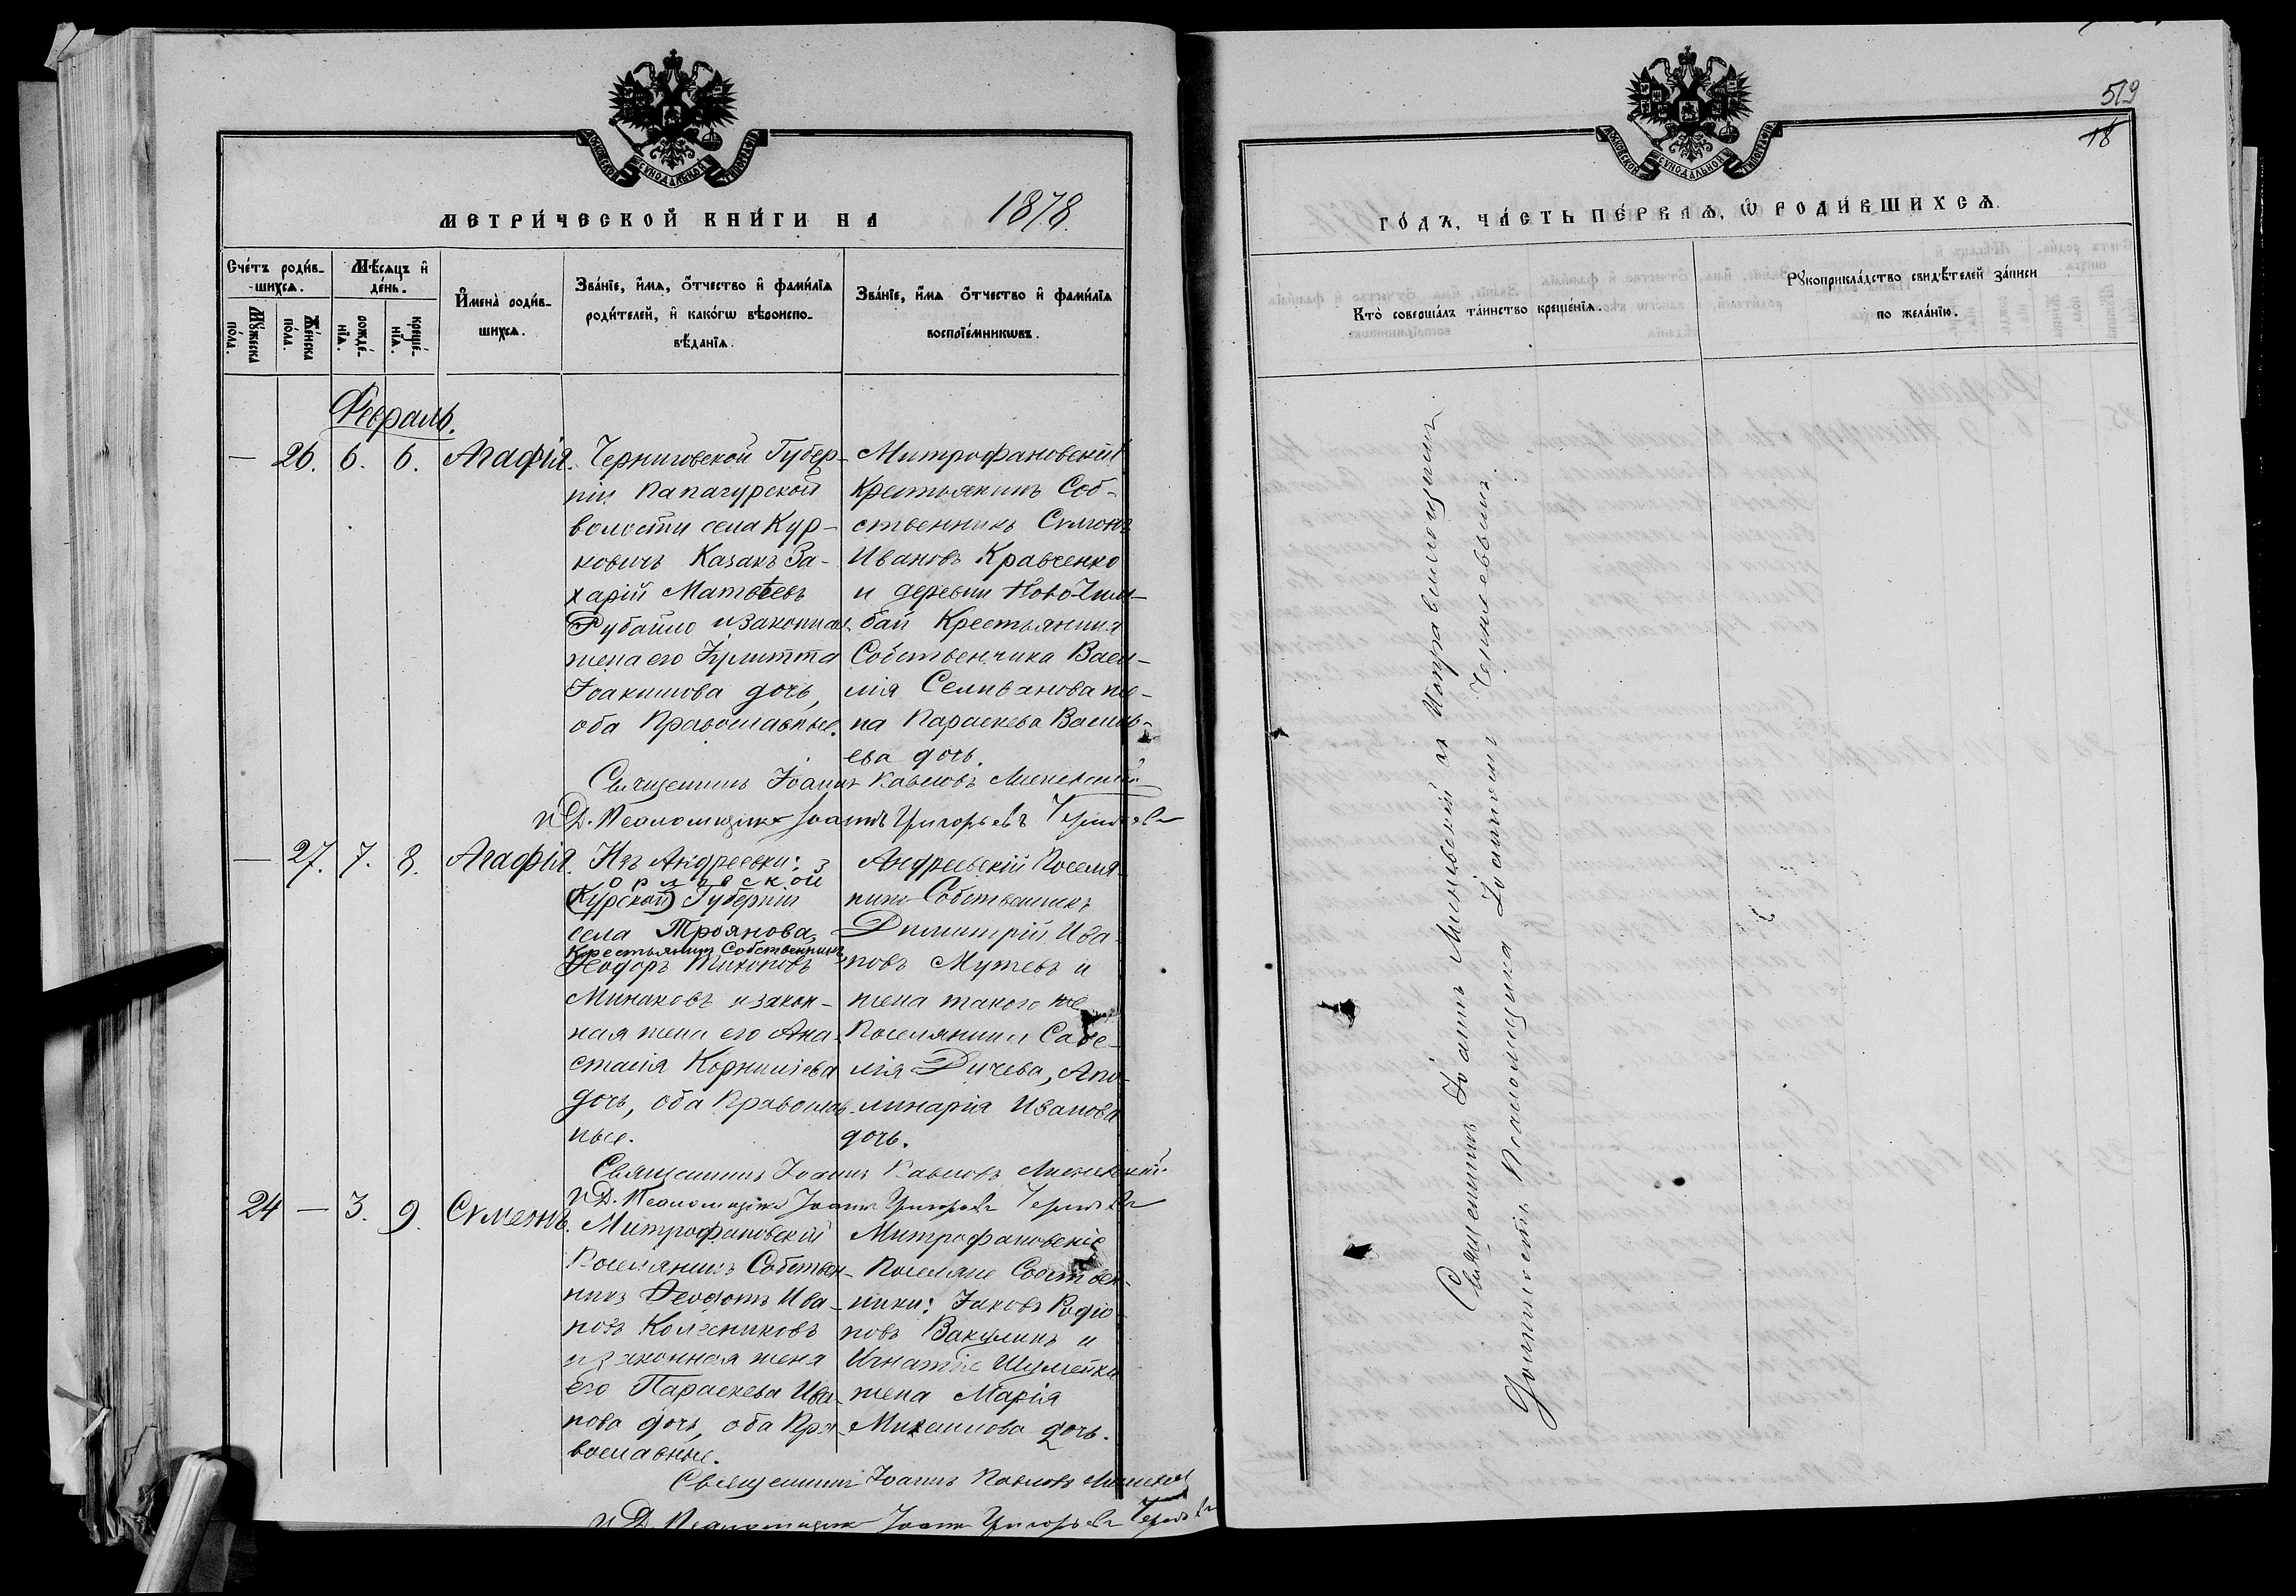 МОСКОВСКОЙ СѴНОДАЛЬНОЙ ТИПОГРАФІИ
МЕТРИ́ЧЕСКОЙ КНИ́ГИ НА 1878.
Сче́тъ роди́в-
шихся.
Му́жеска
по́ла.
Же́нска
по́ла.
Мѣ́сяцъ и҆
де́нь.
рожде́-
нїѧ.
креще́-
нїѧ.
И҆мена̀ роди́в-
шихся.
Зва́нїе, и҆́мѧ, ѻ҆́тчество и҆ фами́лїѧ
роди́телей, и҆ како́гѡ вѣроиспо-
вѣ́данїѧ.
Зва́нїе, и҆́мѧ ѻ҆́тчество и҆ фами́лїѧ
воспрїе́мникѡвъ.
Февраль.
— 26. 6. 6. Агафія.
Черниговской Губер-
ніи
волости села Кур-
ковичъ Казакъ За-
харій Матвѣевъ
Рубайло и законная
жена его Іулитта
Іоакимова дочь,
оба Православные.
Митрофановскій
Крестьянинъ Соб-
ственникъ Симеонъ
Ивановъ Кравченко
и деревни Ново-Чем-
бай Крестьянина
Собственника Васи-
лія Селиванова же-
на Параскева Василь-
ева дочь.
Священникъ Іоаннъ Павловъ Миневскій
И. Д. Псаломщика Іоаннъ Григорьевъ Черняевъ
— 27. 7. 8. Агафія.
Изъ Андреевки:
Орловской
(Курской) Губерніи
села Троянова,
Крестьянинъ Собственникъ
Ѳеодоръ Тихоновъ
Минаковъ и закон-
ная жена его Ана-
стасія Корниліева
дочь, оба Православ-
ные.
Андреевскій Поселя-
нинъ Собственникъ
Димитрій Ива-
новъ Мутевъ и
жена такого же
Поселянина Саве-
лія Дичева, Апо-
линарія Иванова
дочь.
Священникъ Іоаннъ Павловъ Миневскій
И. Д. Псаломщика Іоаннъ Григорьевъ Черняевъ
24 — 3. 9. Симеонъ.
Митрофановскій
Поселянинъ Собствен-
никъ Ѳеодотъ Ива-
новъ Колесниковъ
и законная жена
его Параскева Ива-
нова дочь, оба Пра-
вославные.
Митрофановскіе
Поселяне Собствен-
ники: Іаковъ Родіо-
новъ Вакулинъ и
Игнатіе Шумейки
жена Марія
Михаилова дочь.
Священникъ Іоаннъ Павловъ Миневскій
И. Д. Псаломщика Іоаннъ Григорьевъ Черняевъ
519
18
МОСКОВСКОЙ СѴНОДАЛЬНОЙ ТИПОГРАФІИ
ГО́ДЪ, ЧА́СТЬ ПЕ́РВАѦ, Ѡ҆ РОДИ́ВШИХСѦ.
Кто̀ соверша́лъ та́инство креще́нїѧ.
Рꙋкоприкла́дство свидѣ́телей за́писи
по жела́нїю.
Священникъ Іоаннъ Миневскій съ Исправляющимъ
Должность Псаломщика Іоанномъ Черняевымъ.